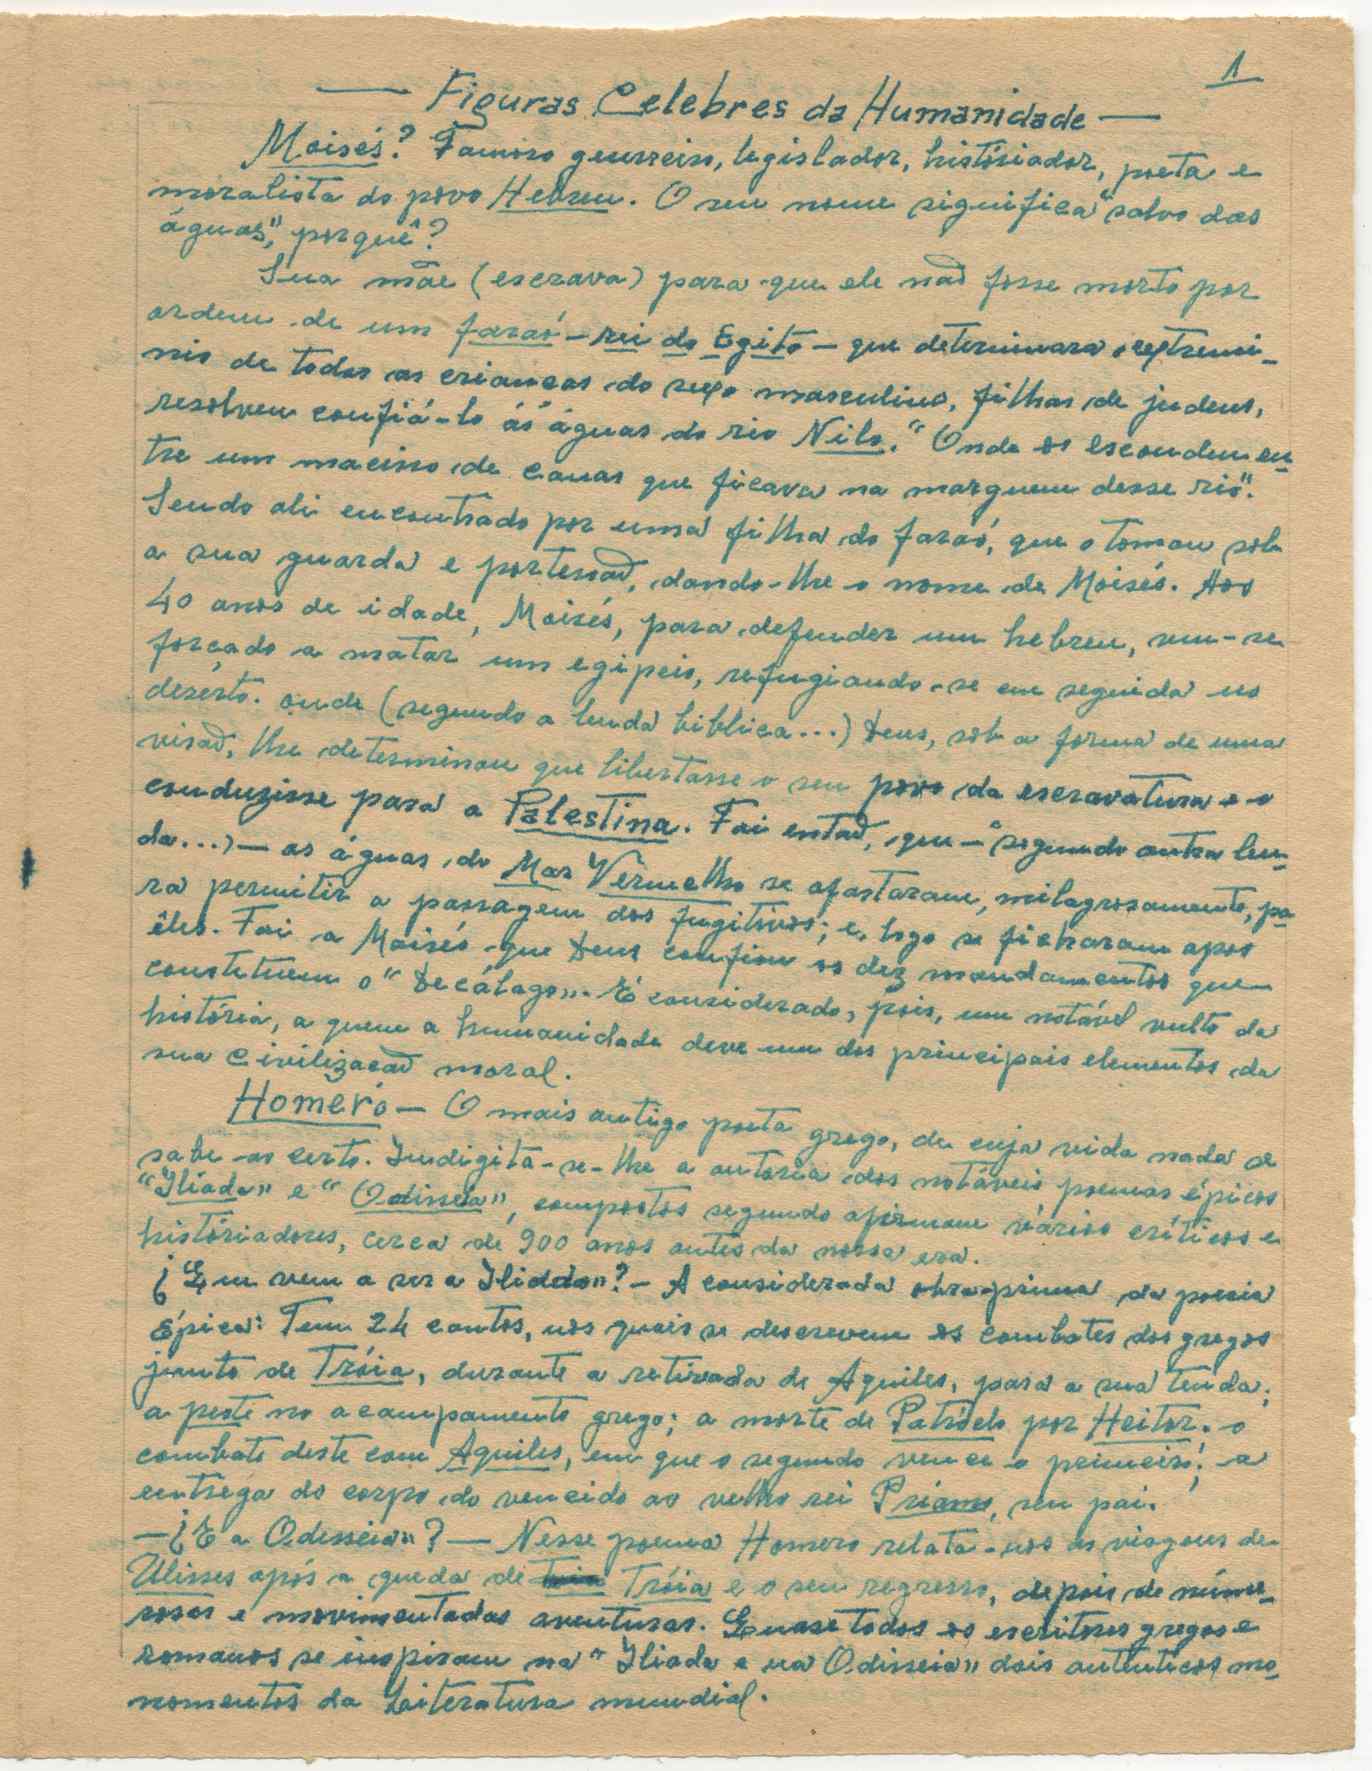 1
— Figuras Celebres da Humanidade —
Moisés? Famoso guerreiro, legislador, históriador, poeta e
moralista do povo Hebreu. O seu nome significa "salvo das
águas", porquê?
Sua mãe (escrava) para que ele não fosse morto por
ordem de um faraó - rei do Egito - que determinara o extremi-
nio de todas as crianças do sexo masculino, filhas de judeus,
resolveu confiá-lo ás águas do rio Nilo. "Onde os escondeu en-
tre um macisso de canas que ficava na marguem desse rio".
Sendo ali encontrado por uma filha do faraó, que o tomou sob
a sua guarda e portessão, dando-lhe o nome de Moisés. Aos
40 anos de idade, Moisés, para defender um hebreu, viu-se
forçado a matar um egipcio, refugiando-se em seguida no
desérto. onde (segundo a lenda biblica...) Deus, sob a forma de uma
visão, lhe determinou que libertasse o seu povo da escravatura e o
conduzisse para a Palestina. Foi então, que - "segundo outra len-
da...) - as águas do Mar Vermelho se afastaram, milagrosamente, pa-
ra permitir a passagem dos fugitivos; e, logo se ficharam apos
êles. Foi a Moisés que Deus confiou os dez mandamentos que
constituem o "Decálogo". É considerado, pois, um notável vulto da
história, a quem a humanidade deve um dos principais elementos da
sua civilização moral.
Homero - O mais antigo poeta grego, de cuja vida nada se
sabe ao certo. Indigita-se-lhe a autoria dos notáveis poemas épicos
"Ilíada" e "Odisseia", compostos segundo afirmam vários críticos e
históriadores, cerca de 900 anos antes da nossa era.
¿Que vem a ser a Iliada"? - A considerada obra-prima da poesia
épica: Tem 24 cantos, nos quais se descrevem os combates dos gregos
junto de Tróia, durante a retirada de Aquiles, para a sua tenda;
a peste no acampamento grego; a morte de Patróclo por Heitor. o
combate deste com Aquiles, em que o segundo vence o primeiro; a
entrega do corpo do vencido ao velho rei Príamo, seu pai.
—¿E a Odisseia"? — Nesse poema Homero relata-nos as viagens de
Ulisses após a queda de Tróia e o seu regresso, depois de núme-
rosas e movimentadas aventuras. Quase todos os escritores gregos e
romanos se inspiram na "Iliada e na Odisseia" dois autenticos mo-
nomentos da Literatura mundial.